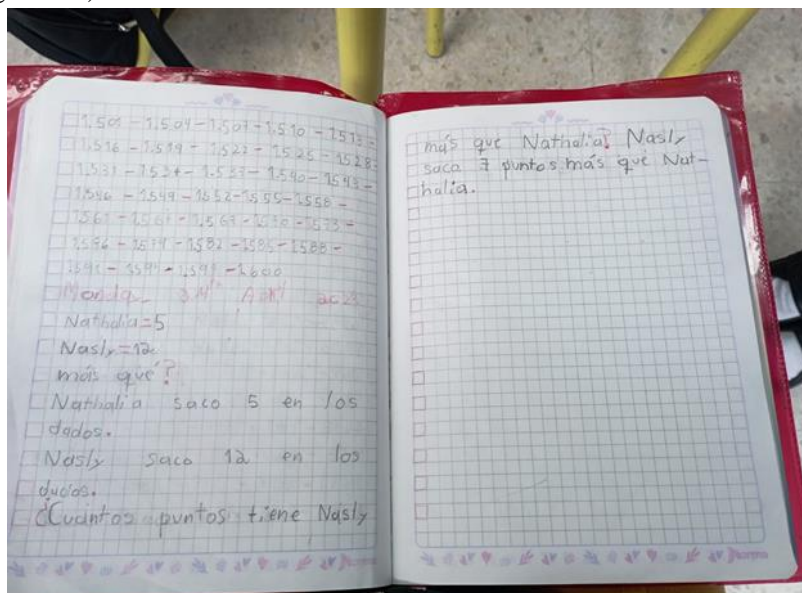 1.501 - 1.504 - 1.507 - 1.510 - 1.513 -
1.516 - 1.519 - 1.522 - 1.525 - 1.528 -
1.531 - 1.534 - 1.537 - 1.540 - 1543 -
1.546 - 1549 - 1552 - 1555 - 1558 -
1561 - 1.567 - 1573 -
1579 - 1582 - 1585 - 1588 -
1.600
Monday
Nathalia=5
Nasly=12
más que?
Nathalia saco 5 en los
dados.
Nasly saco 12 en los
dados.
¿Cuántos puntos tiene Nasly
más que Nathalia? Nasly
saca 7 puntos más que Nat-
halia.